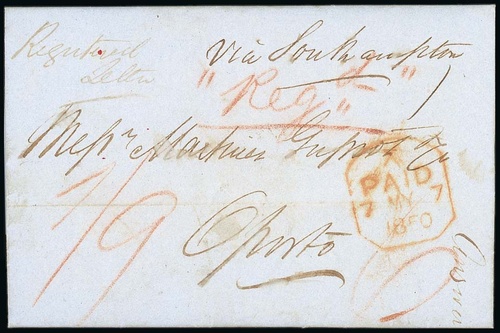 Registered
Letter
via Southampton
"Regd"
Messrs
1/9
Oporto
PAID
7 MY 7
1850